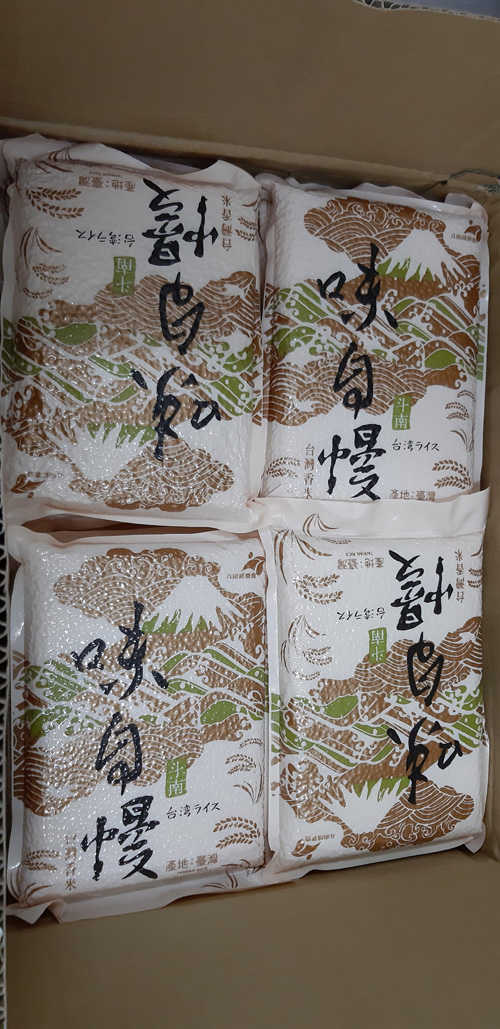 味自慢
斗南
台湾ライス
台灣香米
產地：臺灣
TAIWAN RICE
味自慢
斗南
台湾ライス
台灣香米
產地：臺灣
味自慢
斗南
台湾ライス
台灣香米
產地：臺灣
味自慢
斗南
台湾ライス
台灣香米
產地：臺灣
TAIWAN RICE